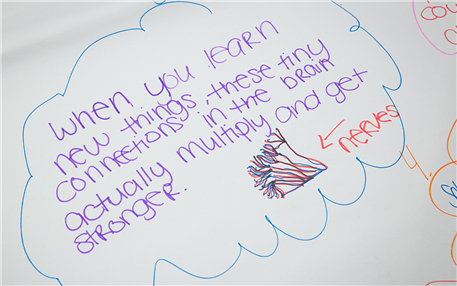 when you learn
new things, these tiny
connections in the brain
actually multiply and get
stronger.
NERVES